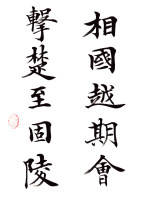 相國越期會
擊楚至固陵